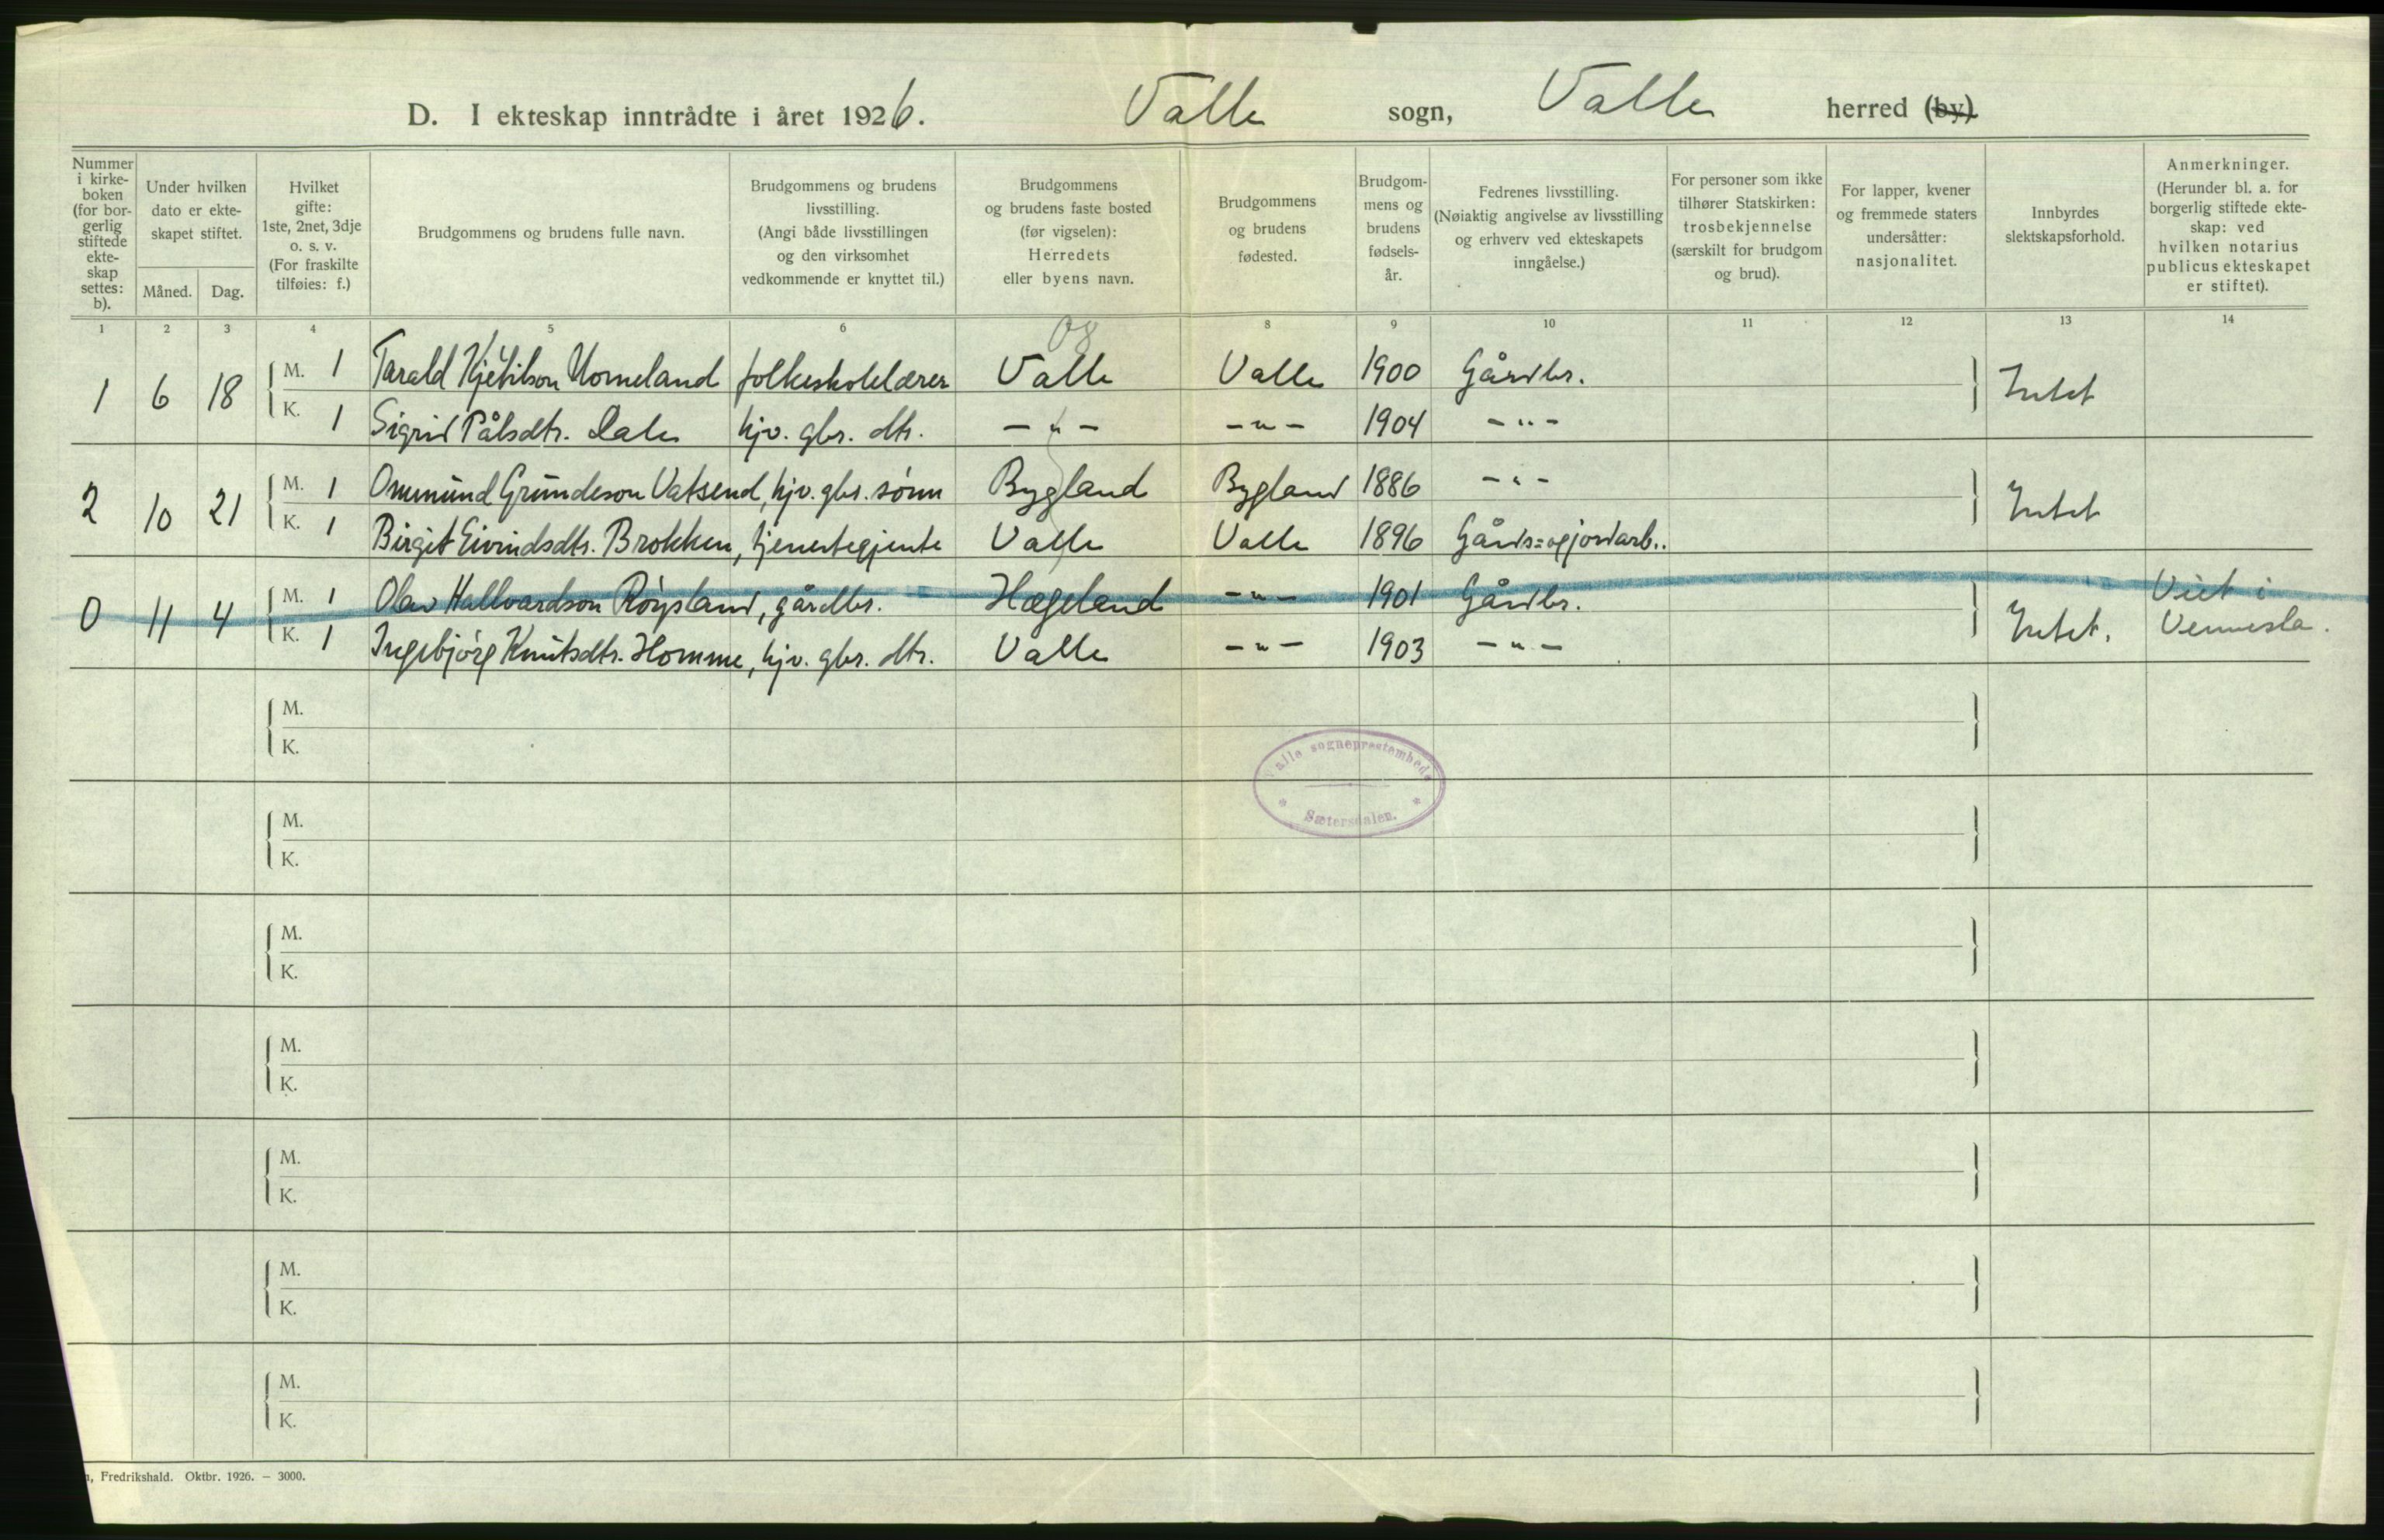 D. I ekteskap inntrådte i året 1926. Valle sogn, Valle herred (by)
Nummer i kirke- boken (for bor- gerlig stiftede ekte- skap settes: b).
Under hvilken dato er ekte- skapet stiftet.
Måned. Dag.
Hvilket gifte: 1ste, 2net, 3dje o. s. v. (For fraskilte tilføies: f.)
Brudgommens og brudens fulle navn.
Brudgommens og brudens livsstilling. (Angi både livsstillingen og den virksomhet vedkommende er knyttet til.)
Brudgommens og brudens faste bosted (før vigselen): Herredets eller byens navn.
Brudgommens og brudens fødested.
Brudgom- mens og brudens fødsels- år.
Fedrenes livsstilling. (Nøiaktig angivelse av livsstilling og erhverv ved ekteskapets inngåelse.)
For personer som ikke tilhører Statskirken: trosbekjennelse (særskilt for brudgom og brud).
For lapper, kvener og fremmede staters undersåtter: nasjonalitet.
Innbyrdes slektskapsforhold.
Anmerkninger. (Herunder bl. a. for borgerlig stiftede ekte- skap: ved hvilken notarius publicus ekteskapet er stiftet).
1 2 3 4 5 6 8 9 10 11 12 13 14
08
1 6 18 M. 1 Tarald Kjetilson Homeland folkeskolelærer Valle Valle 1900 Gårdbr. Intet
K. 1 Sigrid Pålsdtr. Dale hjv. gbr. dtr. -"- -"- 1904 -"-
2 10 21 M. 1 Ommund Gundeson Vatsend, hjv. gbr. sønn Bygland Bygland 1886 -"- Intet
K. 1 Birgit Eivindsdtr. Brokken, tjenestegjente Valle Valle 1896 Gårds= og jordarb..
0 11 4 M. 1 Olav Hallvardson Røysland, gårdbr. Hægeland -"- 1901 Gårdbr. Intet. Viet i Vennesla.
K. 1 Ingebjørg Knutsdtr. Homme, hjv. gbr. dtr. Valle -"- 1903 -"-
M.
K.
Valle sogneprestembede
Sætersdalen.
M.
K.
M.
K.
M.
K.
M.
K.
M.
K.
M.
K.
Fredrikshald. Oktbr. 1926. — 3000.